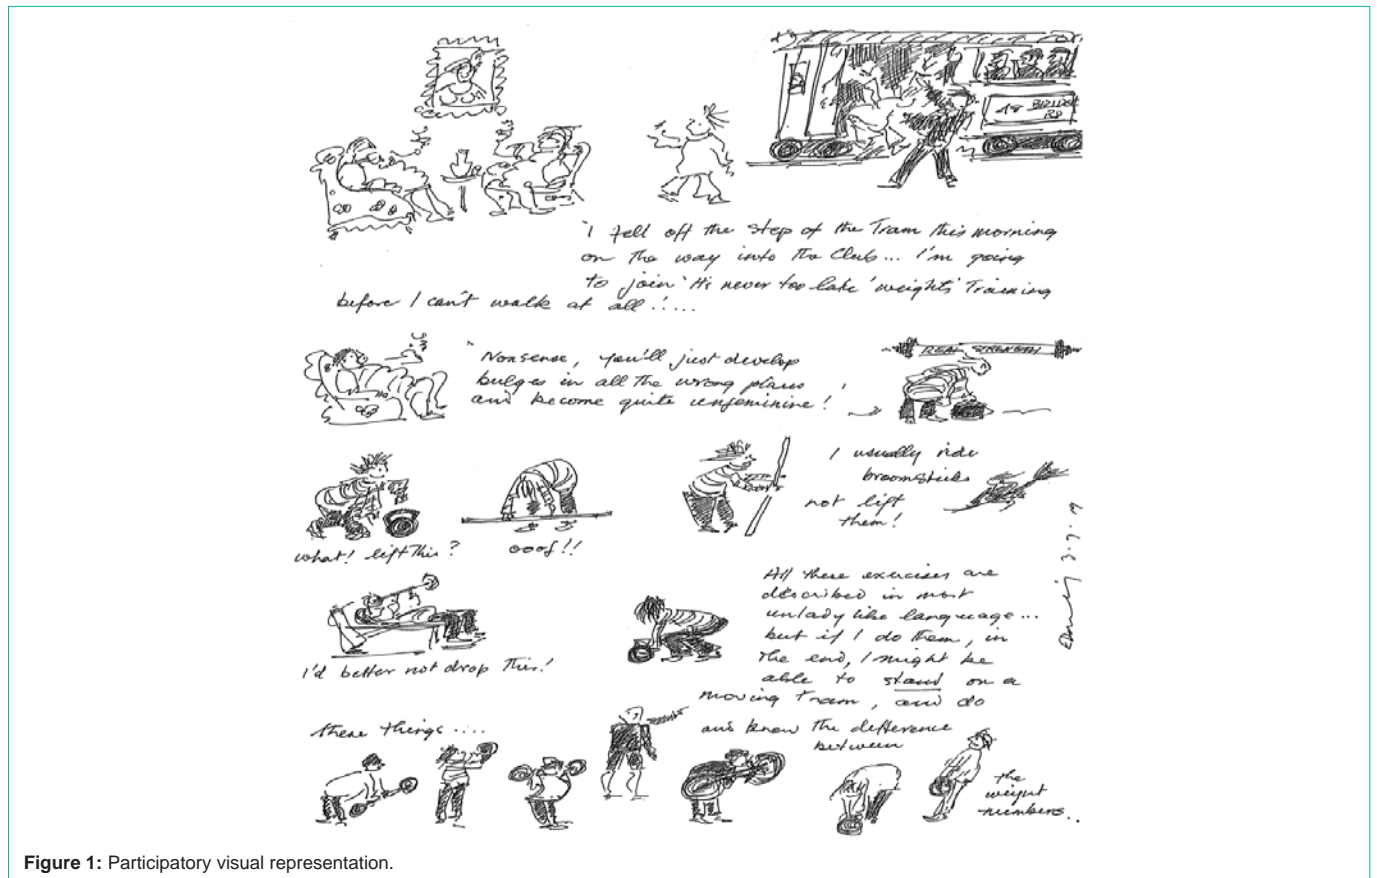 48
"I fell off the step of the Tram this morning
on the way into the Club... I'm going
to join 'It's never too late' weights Training
before I can't walk at all!....
"Nonsense, you'll just develop
bulges in all the wrong places
and become quite unfeminine!
REAL STRENGTH
I usually ride
broomsticks
not lift
them!
what! lift this?
ooof!!
I'd better not drop this!
All these exercises are
described in most
unlady like language...
but if I do them, in
the end, I might be
able to stand on a
moving Tram, and do
these things....
and know the difference
between
the
weight
numbers..
Figure 1: Participatory visual representation.